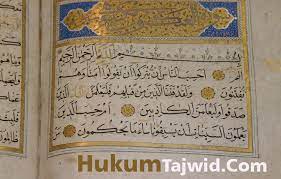 بسم الله الرحمن الرحيم
الم احسب الناس ان يتركوا ان يقولوا امنا وهم
لا يفتنون ولقد فتنا الذين من قبلهم فليعلمن الله الذين
صدقوا وليعلمن الكاذبين ام حسب الذين
يعملون السيئات ان يسبقونا ساء ما يحكمون
HukumTajwid.Com